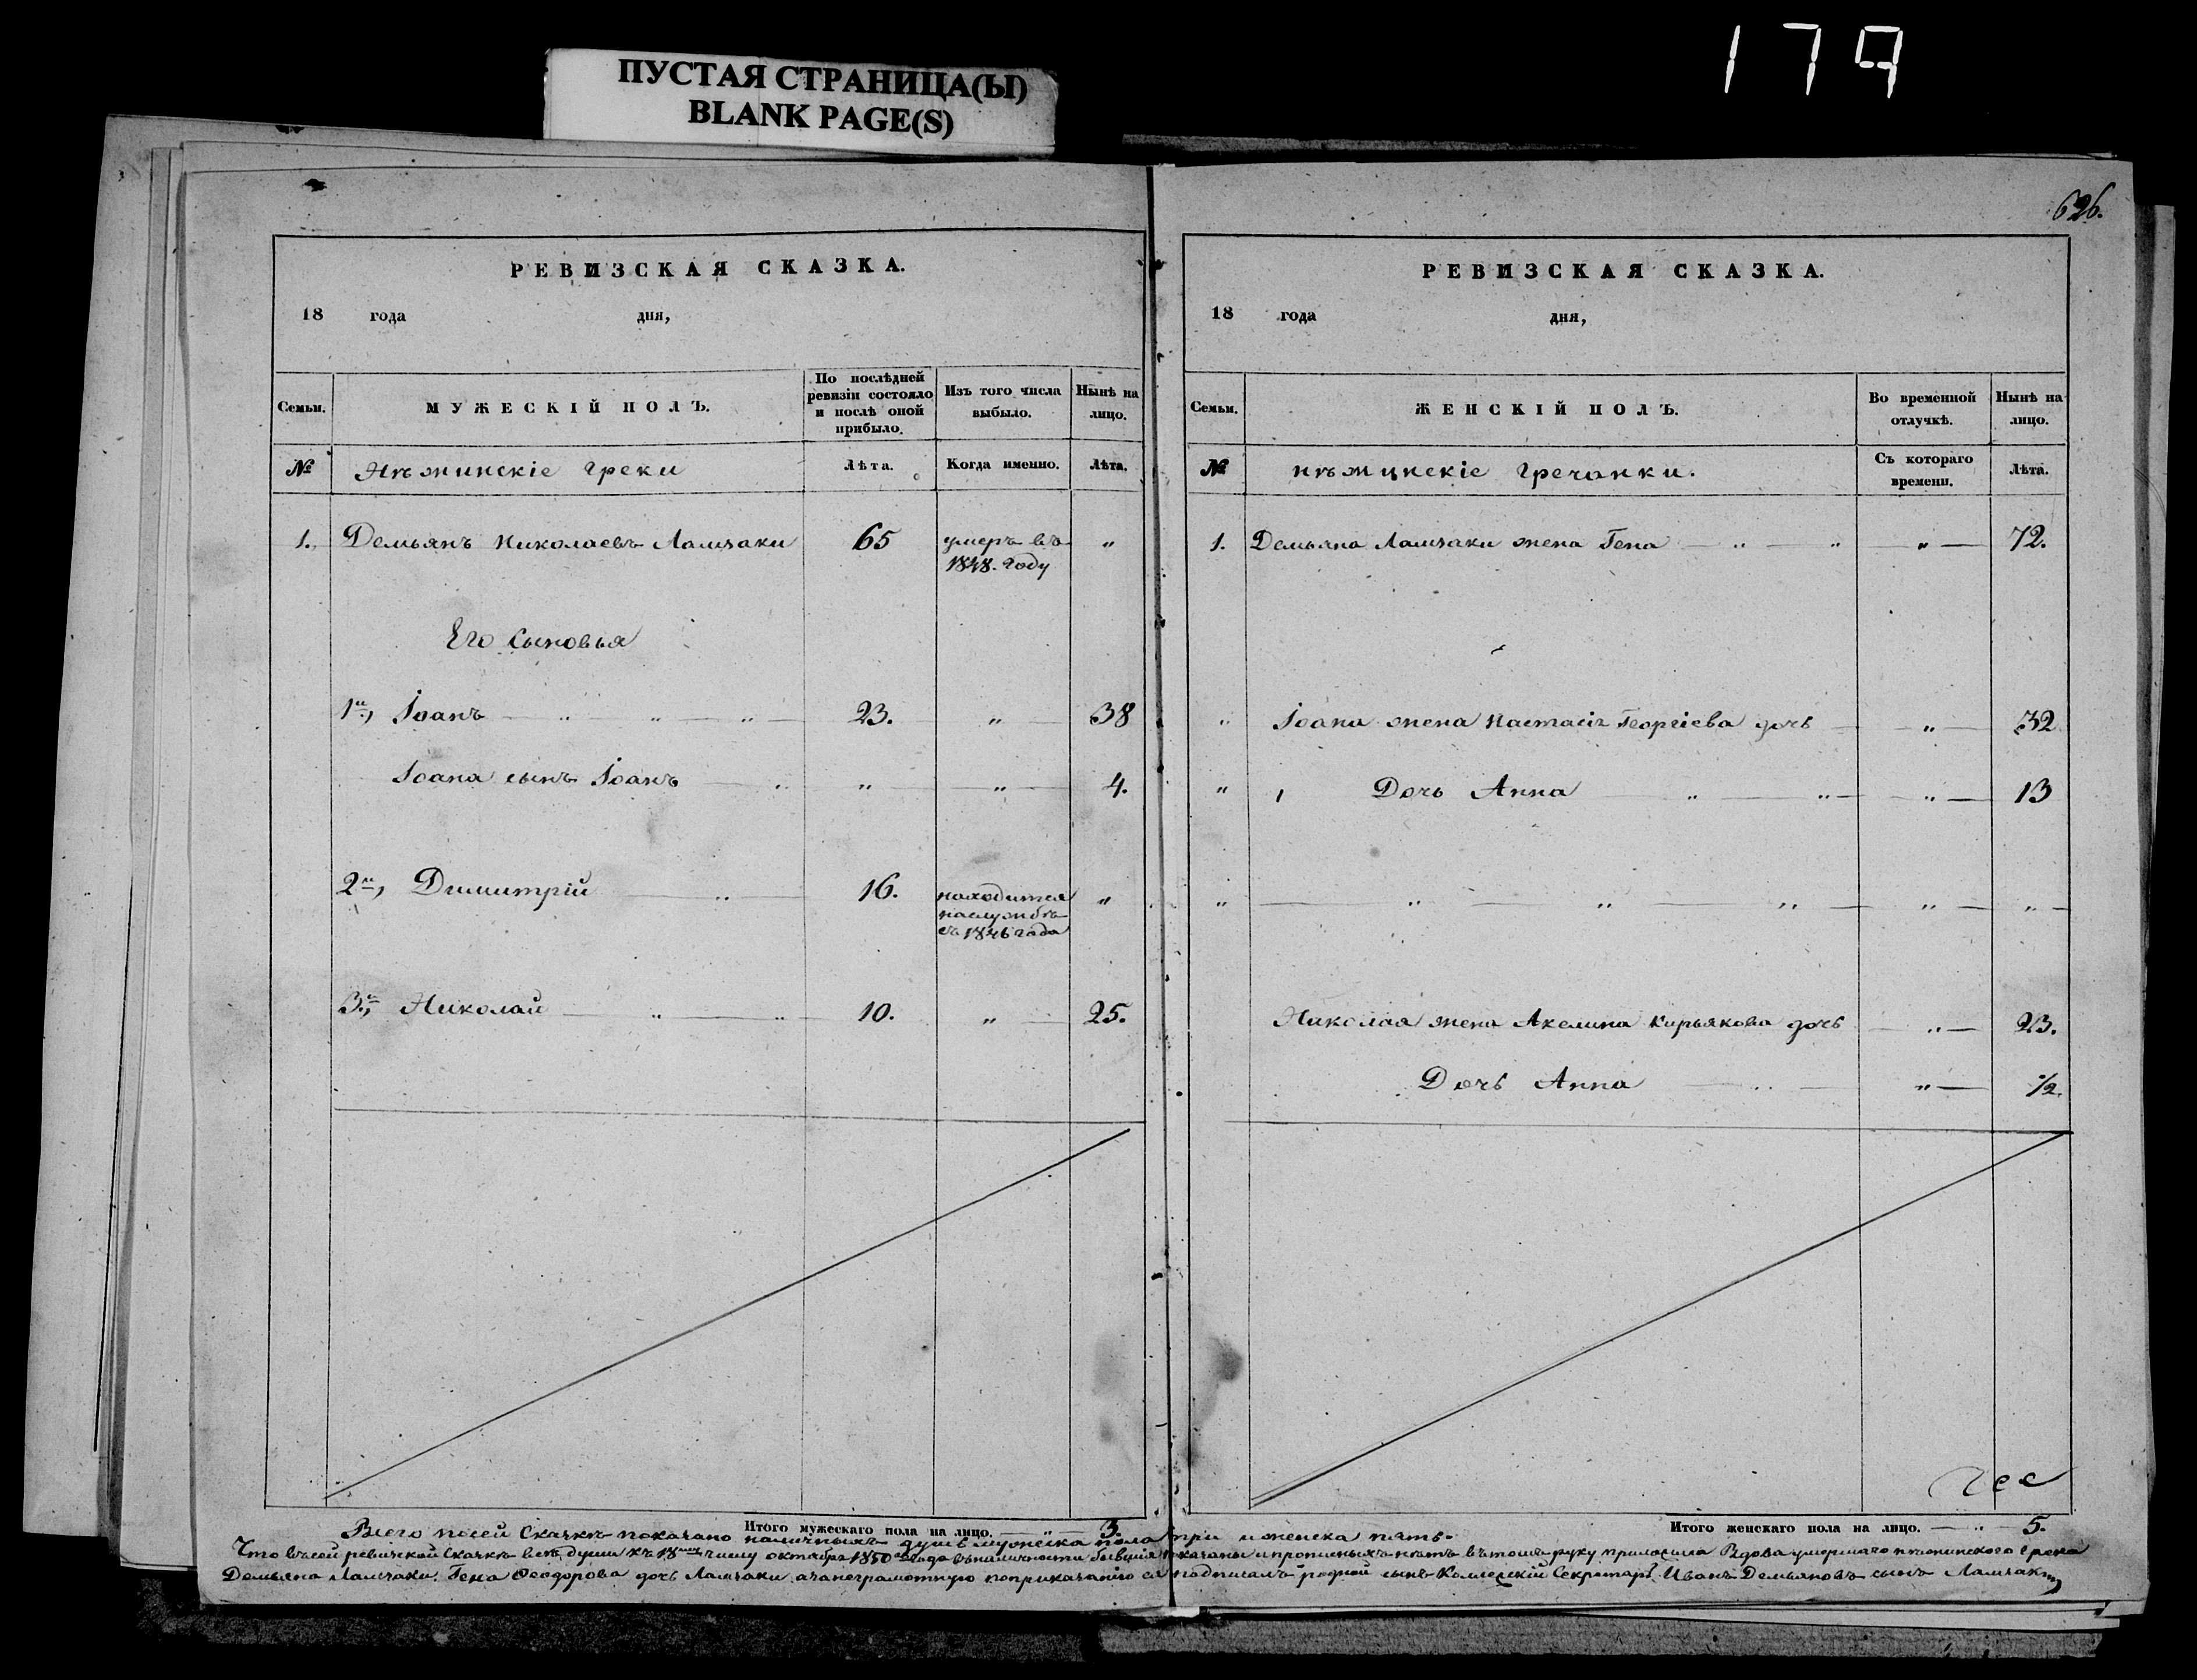 179
ПУСТАЯ СТРАНИЦА(Ы)
BLANK PAGE(S)
РЕВИЗСКАЯ СКАЗКА.
18 года дня,
Семьи.
МУЖЕСКІЙ ПОЛЪ.
По послѣдней ревизіи состояло и послѣ оной прибыло.
Изъ того числа выбыло.
Нынѣ на лицо.
№ Нѣжинскіе Греки
Лѣта. Когда именно. Лѣта.
1. Демьянъ Николаевъ Ламзаки 65 умеръ въ 1848. году "
Его Сыновья
1й, Іоанъ " " " 23. " 38
Іоана сынъ Іоанъ " " " 4.
2й, Димитрій " 16. находится на службѣ съ 1846 года "
3й, Николай " " 10. " 25.
Итого мужескаго пола на лицо. " 3.
626.
РЕВИЗСКАЯ СКАЗКА.
18 года дня,
Семьи.
ЖЕНСКІЙ ПОЛЪ.
Во временной отлучкѣ.
Нынѣ на лицо.
№ нѣжинскіе Гречанки.
Съ котораго времени. Лѣта.
1. Демьяна Ламзаки жена Гена " " " 72.
" Іоана жена Настасія Георгіева дочь " 32
" Дочь Анна " " " 13
" " " " " "
Николая жена Акелина Кирьякова дочь " 23.
Дочь Анна " " 1/2.
Итого женскаго пола на лицо. " 5.
Всего посей Сказкѣ показано наличныхъ душъ мужска пола три и женска пять.
Что въ сей ревизской Сказкѣ всѣ души къ 18му числу октября 1850го года въ наличности бывшія показаны и прописныхъ нѣтъ въ томъ руку приложила Вдова умершаго нѣжинскаго Грека
Демьяна Ламзаки. Гена Феодорова дочь Ламзаки, а за неграмотную по приказанію ея подписалъ родной сынъ Коллежскій Секретарь Иванъ Демьяновъ сынъ Ламзаки